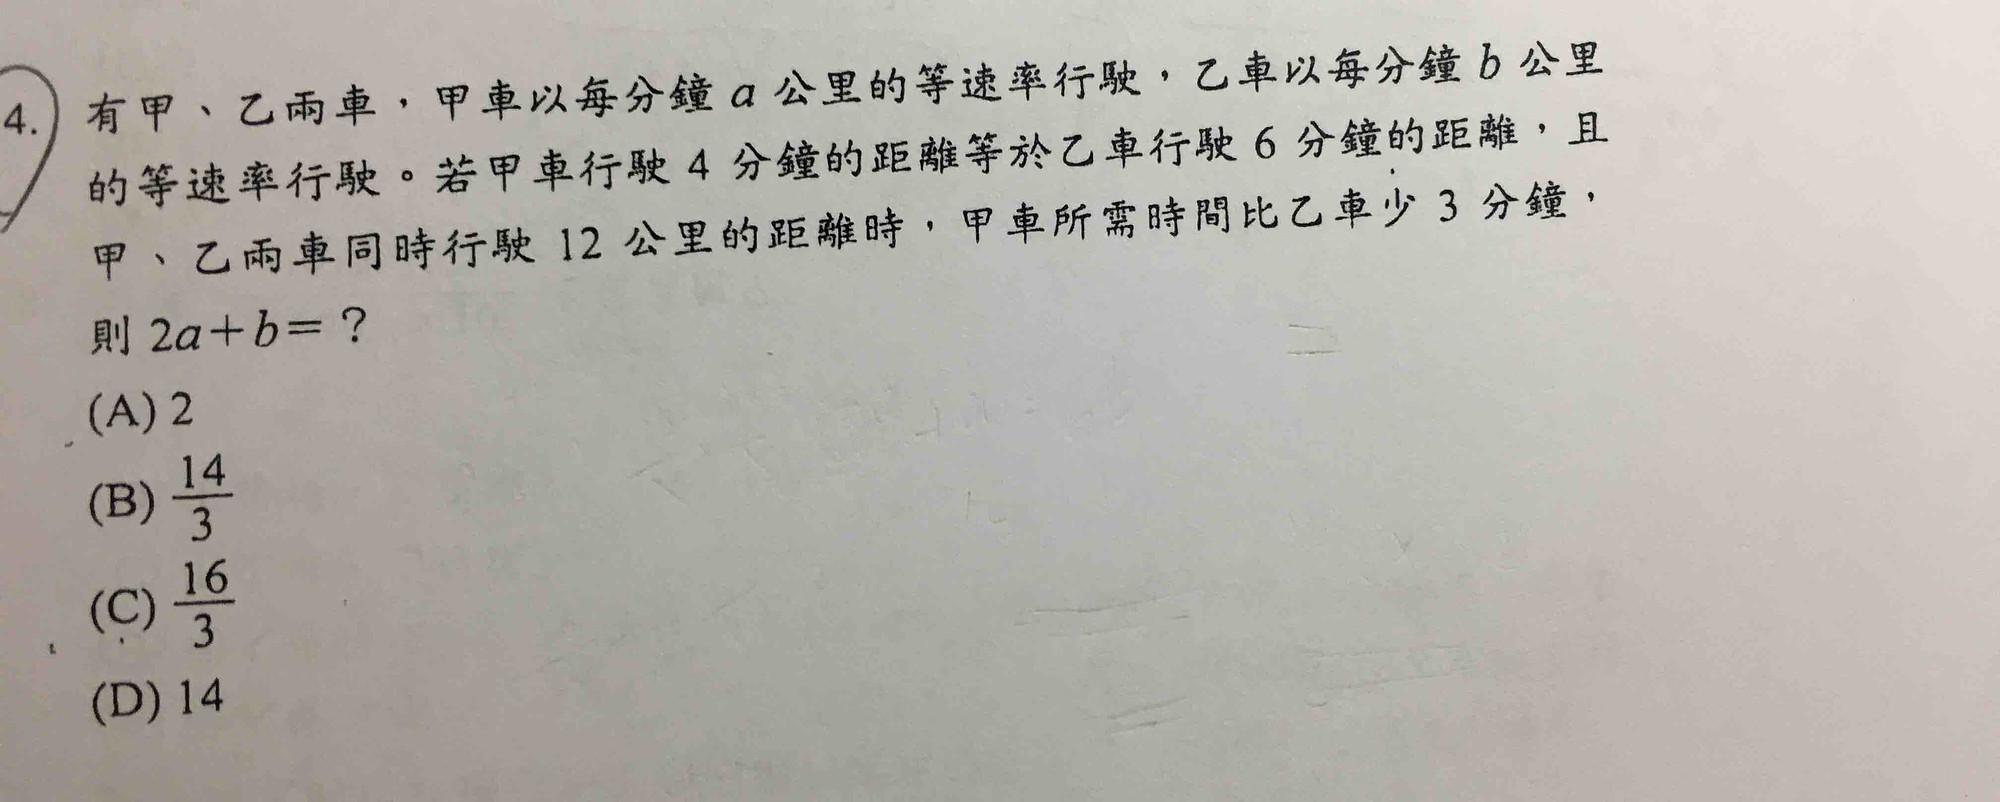 4. 有甲、乙兩車，甲車以每分鐘 a 公里的等速率行駛，乙車以每分鐘 b 公里
的等速率行駛。若甲車行駛 4 分鐘的距離等於乙車行駛 6 分鐘的距離，且
甲、乙兩車同時行駛 12 公里的距離時，甲車所需時間比乙車少 3 分鐘，
則 2a＋b＝？
(A) 2
(B) 14/3
(C) 16/3
(D) 14